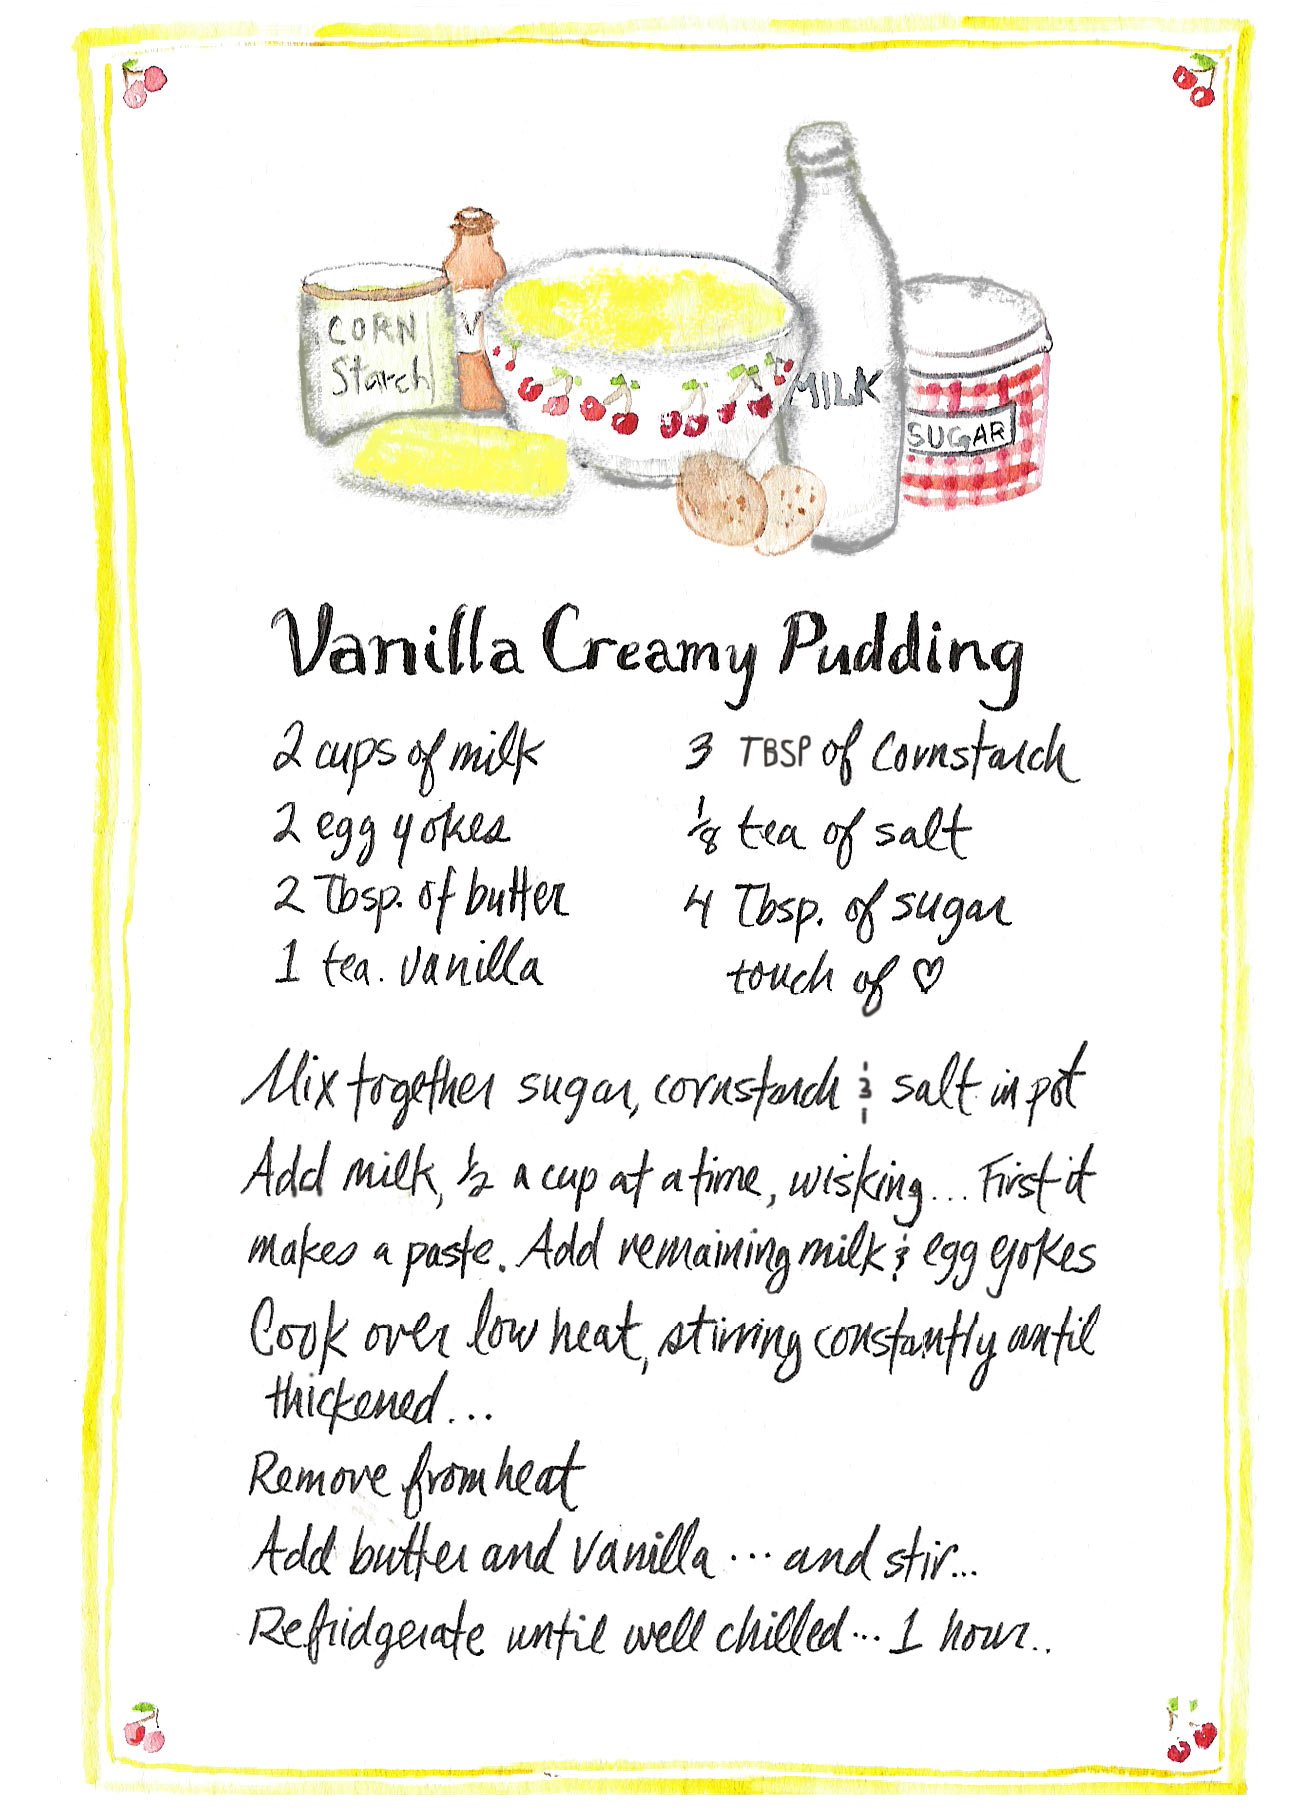 CORN
Starch
V
MILK
SUGAR
Vanilla Creamy Pudding
2 cups of milk
2 egg yokes
2 Tbsp. of butter
1 tea. vanilla
3 TBSP of Cornstarch
1/8 tea of salt
4 Tbsp. of sugar
touch of ♡
Mix together sugar, cornstarch & salt in pot
Add milk, 1/2 a cup at a time, wisking... First it
makes a paste. Add remaining milk & egg yokes
Cook over low heat, stirring constantly until
thickened...
Remove from heat
Add butter and vanilla ... and stir...
Refridgerate until well chilled... 1 hour..